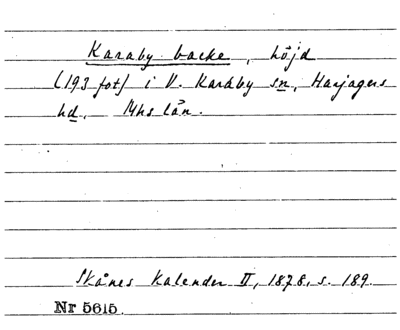 Karaby backe, höjd
(193 fot) i V. Karaby sn, Harjagers
hd, Mhs län.
Skånes Kalender II, 1878, s. 189.
Nr 5615.